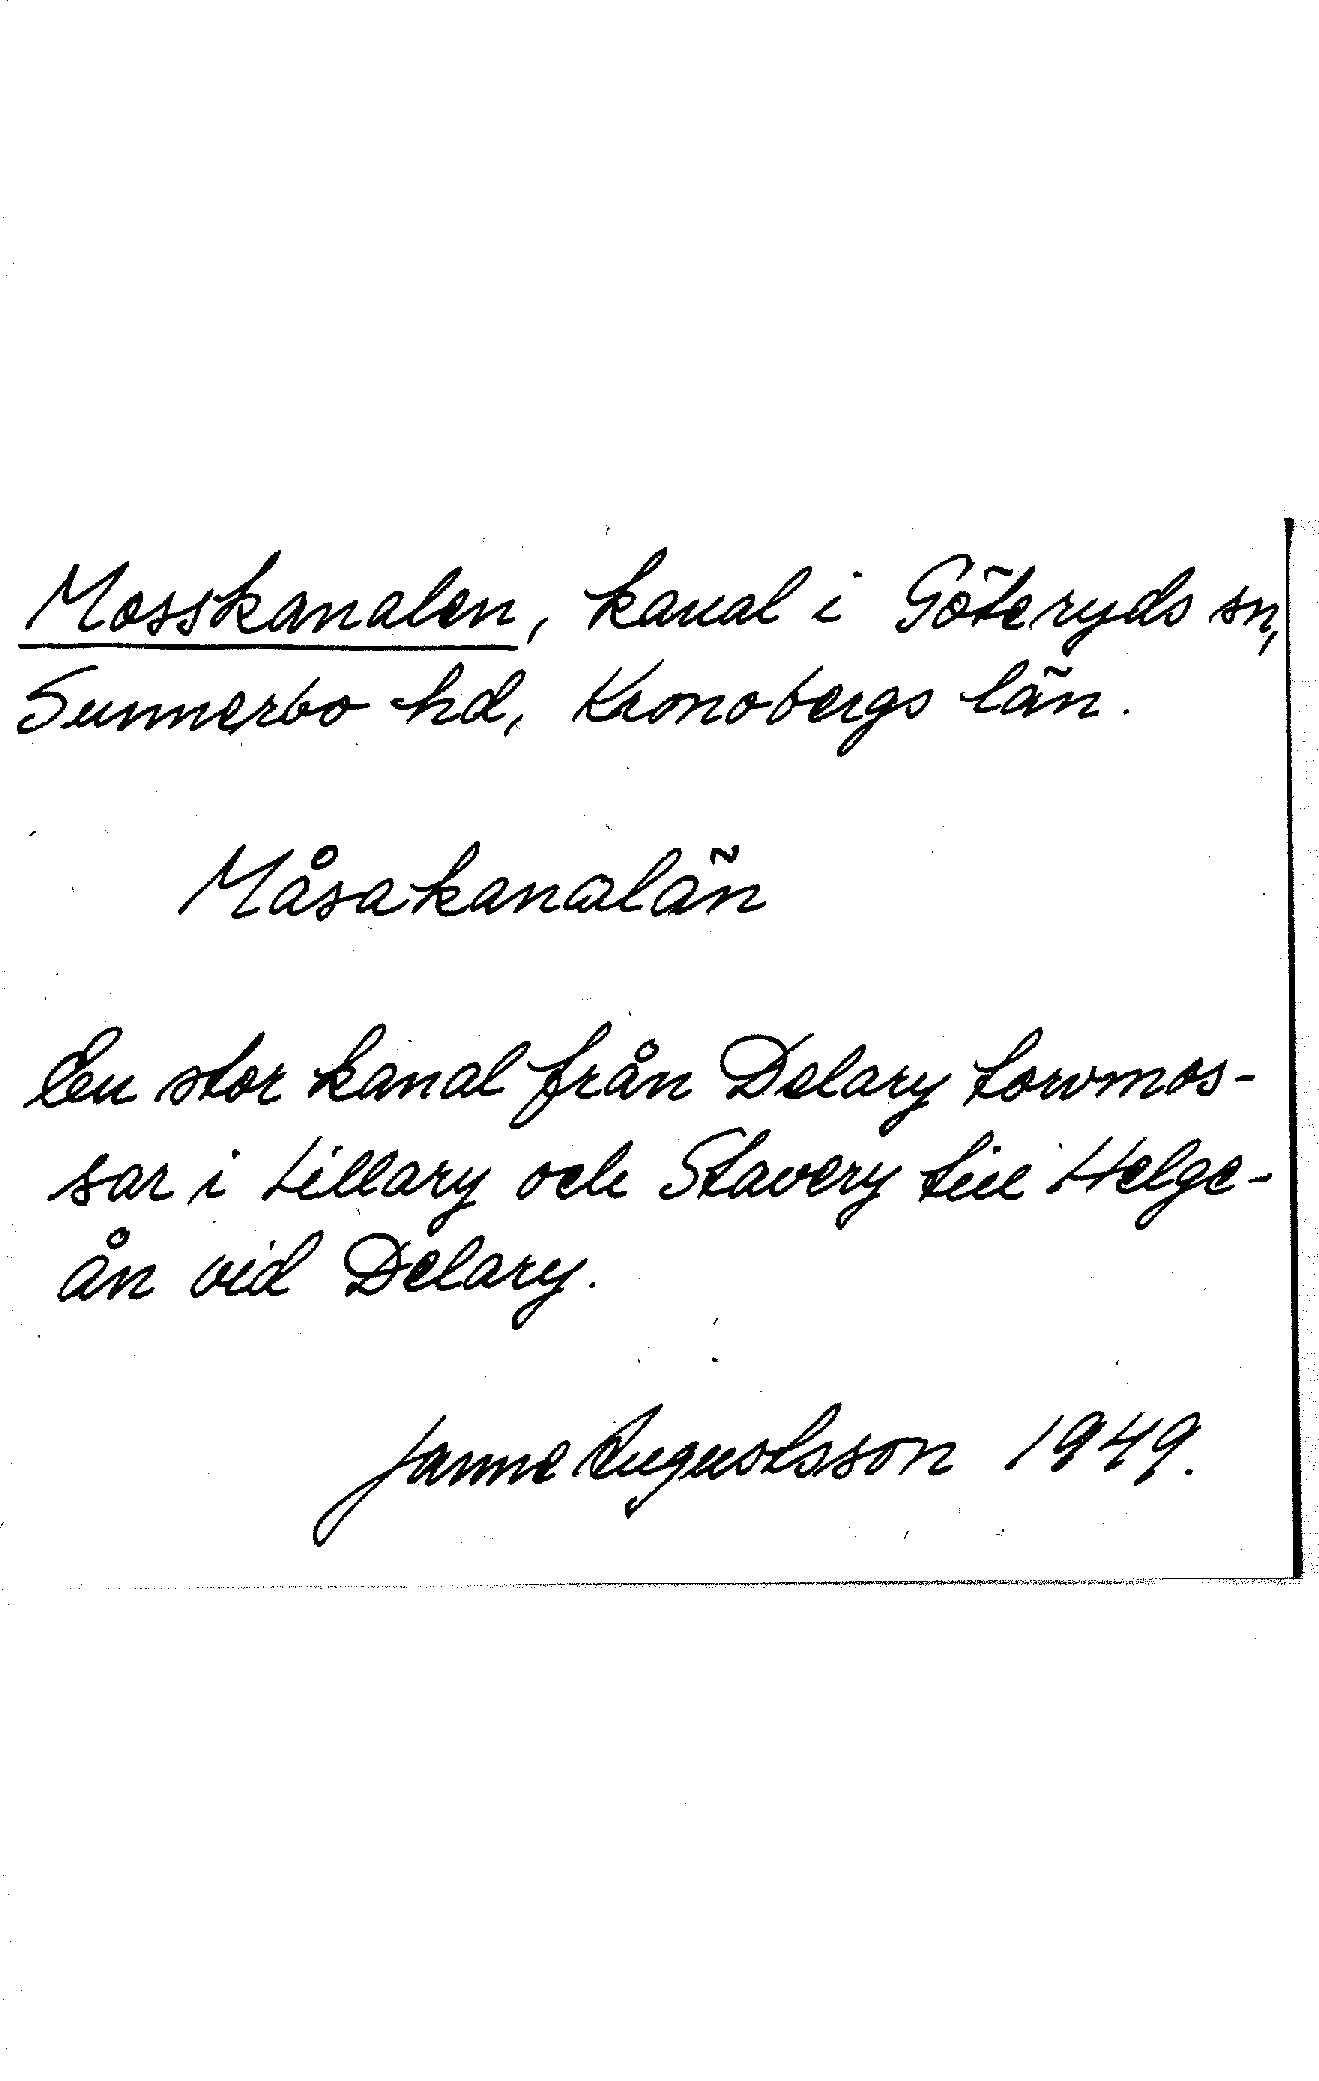 Mosskanalen, kanal i Göteryds sn,
Sunnerbo hd, Kronobergs län.
Måsakanalän
En stor kanal från Delary torvmos-
sar i Lillary och Stavery till Helge-
ån vid Delary.
Janne Augustsson 1949.